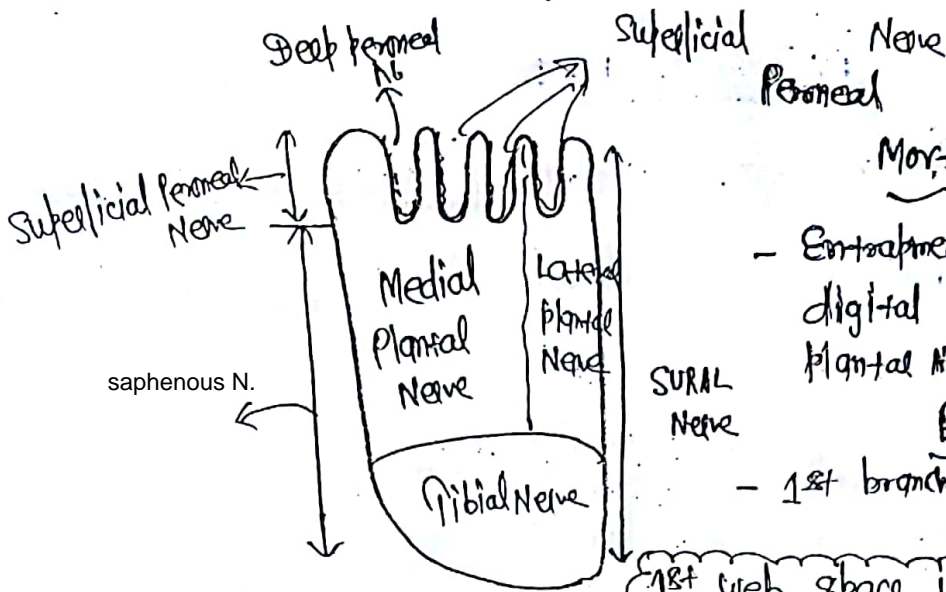 Deep peroneal
N
Superficial Nerve
Peroneal
Superficial Peroneal
Nerve
Medial
Plantar
Nerve
Lateral
Plantar
Nerve
saphenous N.
SURAL
Nerve
Tibial Nerve
Mor
- Entrapme
digital
Plantar N
- 1st branch
1st web space